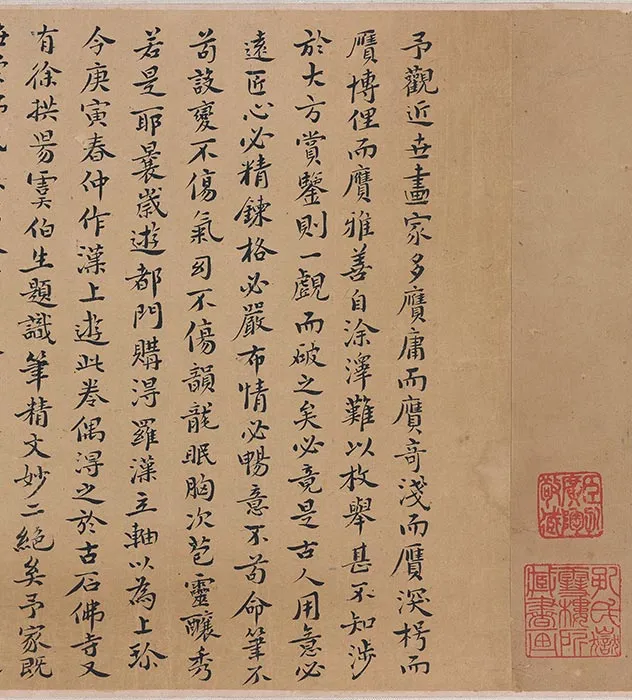 予觀近世畫家多贋庸而贋奇淺而贋深樗而
贋博俚而贋雅善自涂澤難以枚舉甚不知涉
於大方賞鑒則一覷而破之矣必竟是古人用意必
遠匠心必精鍊格必嚴布情必暢意不苟命筆不
苟設變不傷氣勾不傷韻龍眠胸次苞靈釀秀
若是耶曩歲遊都門購淂羅漢立軸以為上珎
今庚寅春仲作漢上遊此卷偶淂之於古石佛寺又
有徐拱昜虞伯生題識筆精文妙二絕矣予家既
孔氏嶽雪樓所藏書畫